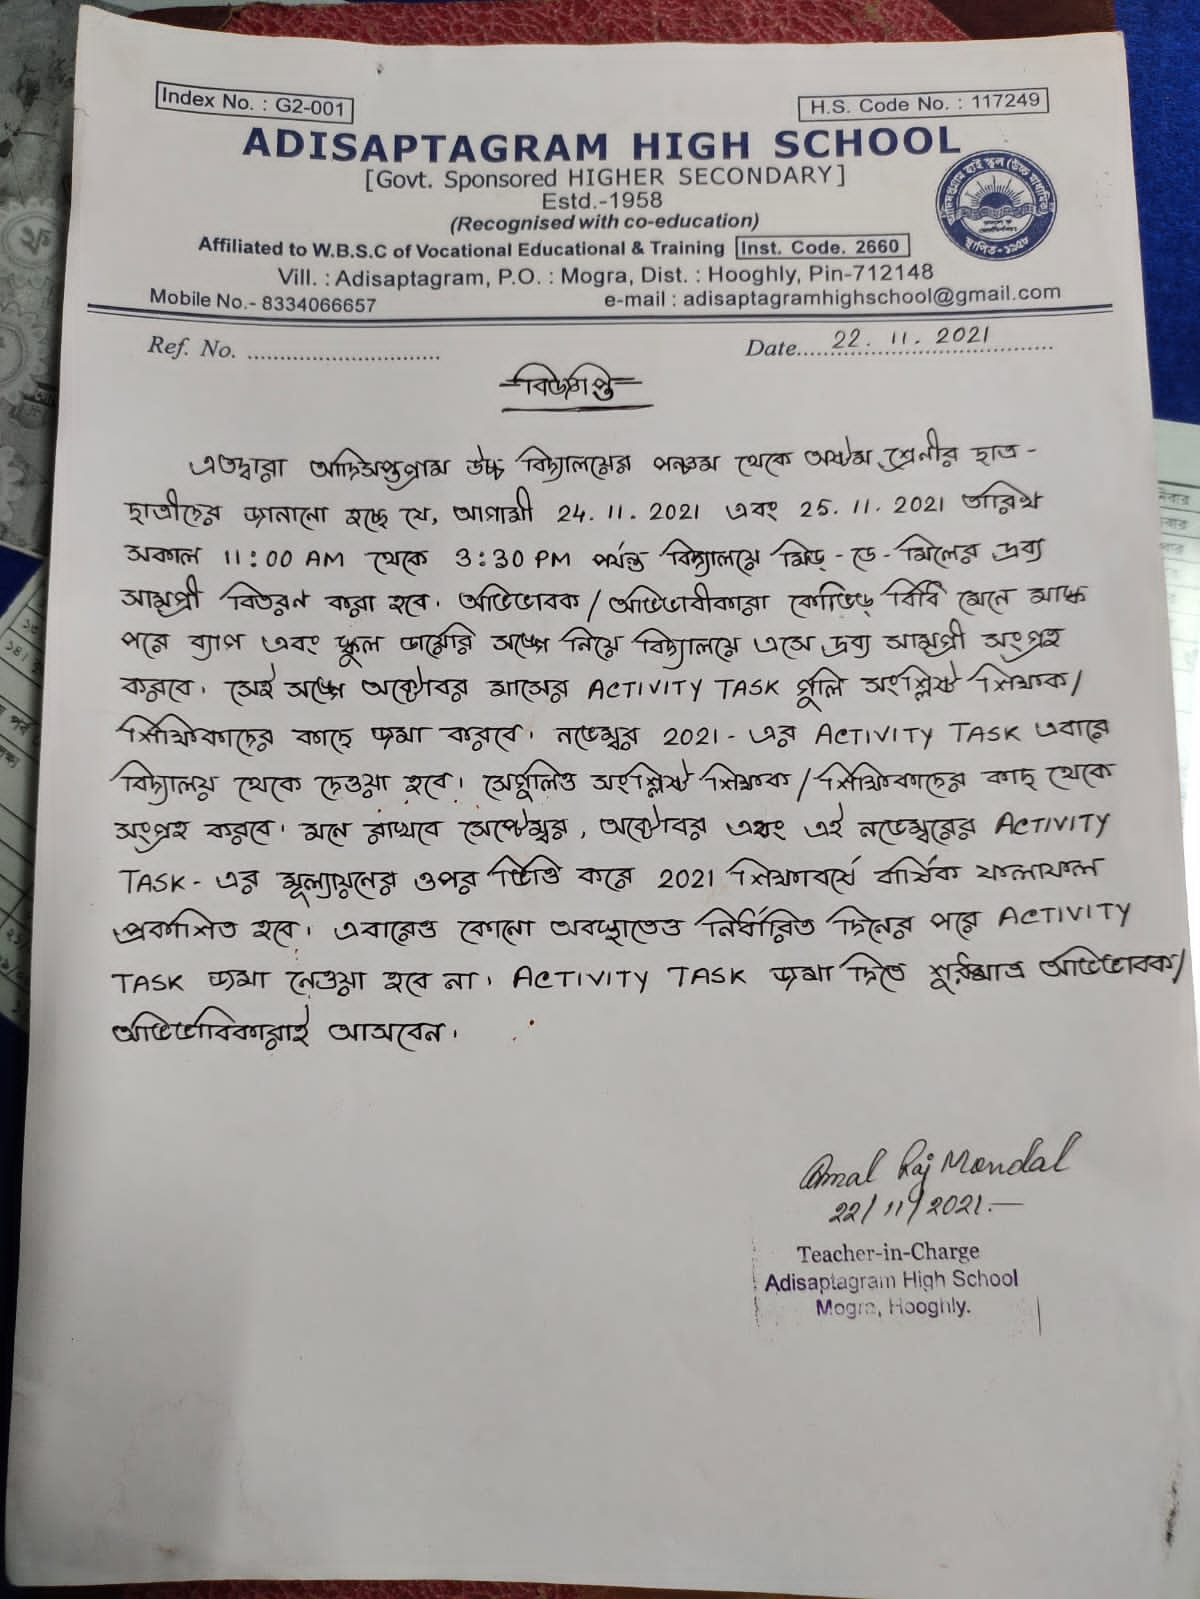 Index No. : G2-001
H.S. Code No. : 117249
ADISAPTAGRAM HIGH SCHOOL
[Govt. Sponsored HIGHER SECONDARY]
Estd.-1958
(Recognised with co-education)
Affiliated to W.B.S.C of Vocational Educational & Training Inst. Code. 2660
Vill. : Adisaptagram, P.O. : Mogra, Dist. : Hooghly, Pin-712148
Mobile No.- 8334066657
e-mail : adisaptagramhighschool@gmail.com
Ref. No. ................................
Date....22. 11. 2021............
বিজ্ঞপ্তি
এতদ্বারা আদিসপ্তগ্রাম উচ্চ বিদ্যালয়ের পঞ্চম থেকে অষ্টম শ্রেনীর ছাত্র-
ছাত্রীদের জানানো হচ্ছে যে, আগামী 24. 11. 2021 এবং 25. 11. 2021 তারিখ
সকাল 11:00 AM থেকে 3:30 PM পর্যন্ত বিদ্যালয়ে মিড্-ডে-মিলের দ্রব্য
সামগ্রী বিতরন করা হবে। অভিভাবক/অভিভাবীকারা কোভিড্ বিধি মেনে মাস্ক
পরে ব্যাগ এবং স্কুল ডায়েরি সঙ্গে নিয়ে বিদ্যালয়ে এসে দ্রব্য সামগ্রী সংগ্রহ
করবে। সেই সঙ্গে অক্টোবর মাসের ACTIVITY TASK গুলি সংশ্লিষ্ট শিক্ষক/
শিক্ষিকাদের কাছে জমা করবে। নভেম্বর 2021-এর ACTIVITY TASK এবারে
বিদ্যালয় থেকে দেওয়া হবে। সেগুলিও সংশ্লিষ্ট শিক্ষক/শিক্ষিকাদের কাছ থেকে
সংগ্রহ করবে। মনে রাখবে সেপ্টেম্বর, অক্টোবর এবং এই নভেম্বরের ACTIVITY
TASK-এর মূল্যায়নের ওপর ভিত্তি করে 2021 শিক্ষাবর্ষে বার্ষিক ফলাফল
প্রকাশিত হবে। এবারেও কোনো অবস্থাতেও নির্ধারিত দিনের পরে ACTIVITY
TASK জমা নেওয়া হবে না। ACTIVITY TASK জমা দিতে শুধুমাত্র অভিভাবক/
অভিভাবিকারাই আসবেন।
Amal Raj Mondal
22/11/2021.—
Teacher-in-Charge
Adisaptagram High School
Mogra, Hooghly.